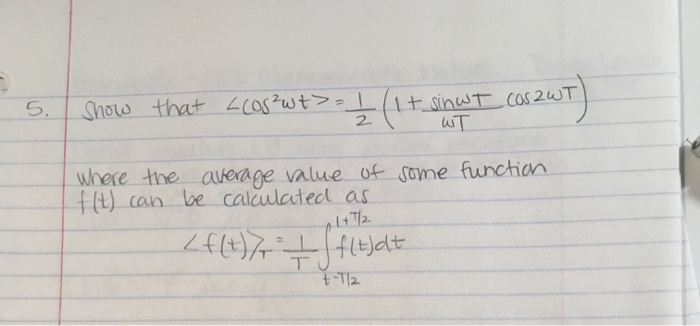 5. Show that <cos²wt> = 1/2 (1 + sinwT/wT cos2wT)
where the average value of some function
f(t) can be calculated as
<f(t)>_T = 1/T ∫_{t-T/2}^{1+T/2} f(t)dt